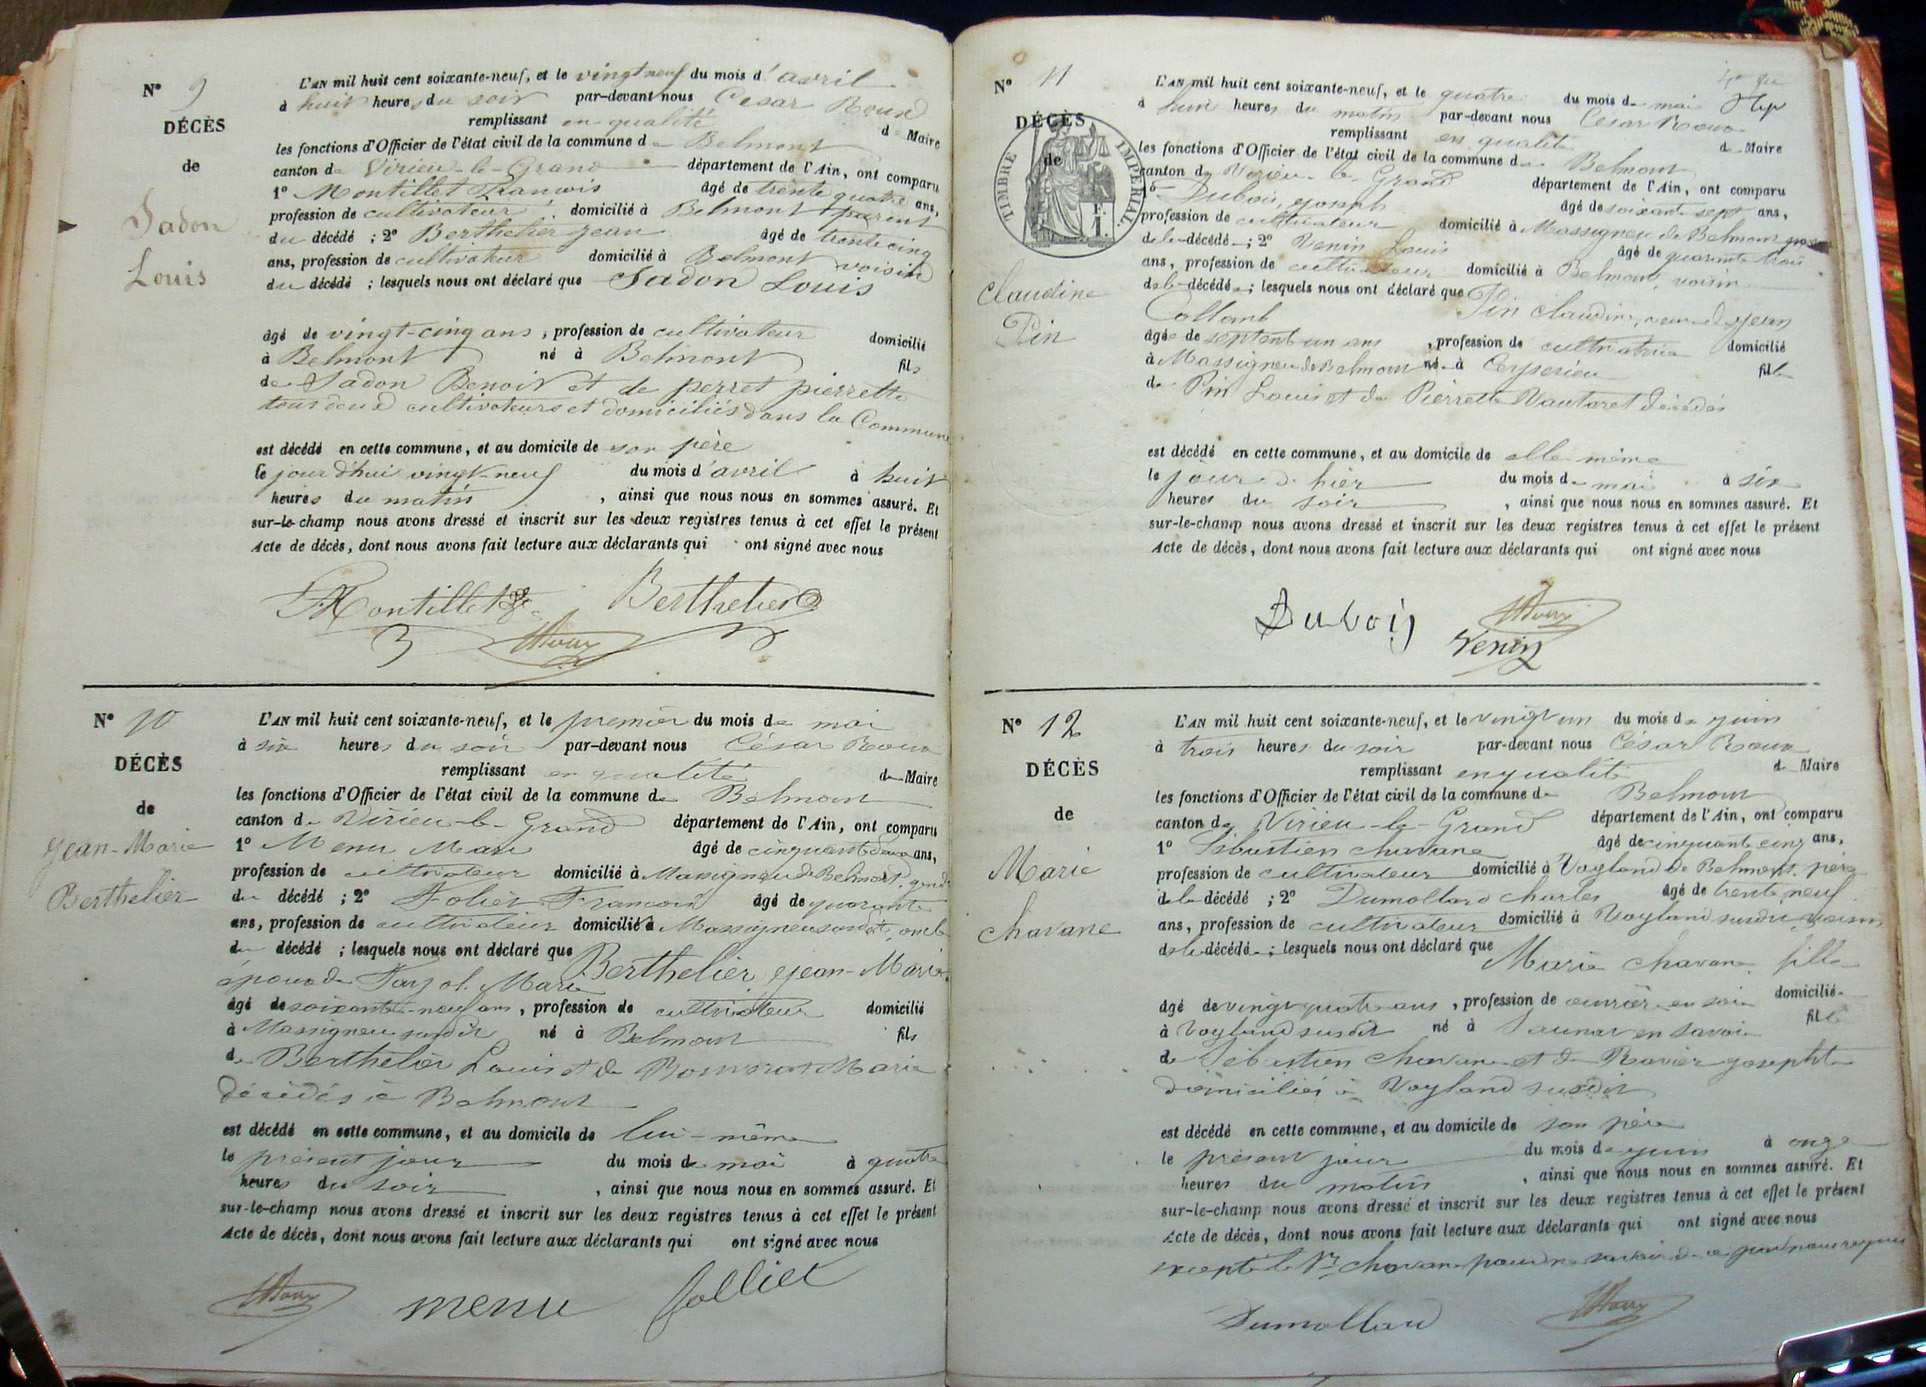 N° 9
DÉCÈS
de
Sadon
Louis
L'AN mil huit cent soixante-neuf, et le vingt neuf du mois d'avril
à huit heures du soir par-devant nous César Roux
remplissant en qualité de Maire
les fonctions d'Officier de l'état civil de la commune de Belmont
canton de Virieu-le-Grand département de l'Ain, ont comparu
1° Montillet François âgé de trente quatre ans,
profession de cultivateur domicilié à Belmont parent
du décédé ; 2° Berthelier Jean âgé de trente cinq
ans, profession de cultivateur domicilié à Belmont voisin
du décédé ; lesquels nous ont déclaré que Sadon Louis
âgé de vingt-cinq ans, profession de cultivateur domicilié
à Belmont né à Belmont fils
de Sadon Benoit et de perret pierrette
tous deux cultivateurs et domiciliés dans la Commune
est décédé en cette commune, et au domicile de son père
le jourd'hui vingt-neuf du mois d'avril à huit
heures du matin, ainsi que nous nous en sommes assuré. Et
sur-le-champ nous avons dressé et inscrit sur les deux registres tenus à cet effet le présent
Acte de décès, dont nous avons fait lecture aux déclarants qui ont signé avec nous
Montillet Berthelier
Roux
N° 10
DÉCÈS
de
Jean-Marie
Berthelier
L'AN mil huit cent soixante-neuf, et le premier du mois de mai
à six heures du soir par-devant nous César Roux
remplissant en qualité de Maire
les fonctions d'Officier de l'état civil de la commune de Belmont
canton de Virieu-le-Grand département de l'Ain, ont comparu
1° Menu Marc âgé de cinquante deux ans,
profession de cultivateur domicilié à Massigneu de Belmont, gendre
du décédé ; 2° Foliet François âgé de quarante
ans, profession de cultivateur domicilié à Massigneu susdit, oncle
du décédé ; lesquels nous ont déclaré que Berthelier Jean-Marie
époux de Marie
âgé de soixante-neuf ans, profession de cultivateur domicilié
à Massigneu susdit né à Belmont fils
de Berthelier Louis et de Marie
décédés à Belmont
est décédé en cette commune, et au domicile de lui-même
le présent jour du mois de mai à quatre
heures du soir, ainsi que nous nous en sommes assuré. Et
sur-le-champ nous avons dressé et inscrit sur les deux registres tenus à cet effet le présent
Acte de décès, dont nous avons fait lecture aux déclarants qui ont signé avec nous
Roux menu folliet
N° 11
DÉCÈS
de
TIMBRE IMPERIAL
F. 1.
Claudine
Pin
L'AN mil huit cent soixante-neuf, et le quatre du mois de mai
à huit heures du matin par-devant nous César Roux
remplissant en qualité de Maire
les fonctions d'Officier de l'état civil de la commune de Belmont
canton de Virieu-le-Grand département de l'Ain, ont comparu
1° Dubois, Joseph âgé de soixante sept ans,
profession de cultivateur domicilié à Massigneu de Belmont
de la décédée ; 2° Venin Louis âgé de quarante trois
ans, profession de cultivateur domicilié à Belmont, voisin
de la décédée ; lesquels nous ont déclaré que Pin Claudine, veuve de Jean
Collomb
âgée de septante un ans, profession de cultivatrice domicilié
à Massigneu de Belmont née à Ceyserieu fille
de Pin Louis et de Pierrette Vautaret décédés
est décédé en cette commune, et au domicile de elle même
le jour d'hier du mois de mai à six
heures du soir, ainsi que nous nous en sommes assuré. Et
sur-le-champ nous avons dressé et inscrit sur les deux registres tenus à cet effet le présent
Acte de décès, dont nous avons fait lecture aux déclarants qui ont signé avec nous
Dubois Roux
Venin
N° 12
DÉCÈS
de
Marie
Chavane
L'AN mil huit cent soixante-neuf, et le vingt un du mois de juin
à trois heures du soir par-devant nous César Roux
remplissant en qualité de Maire
les fonctions d'Officier de l'état civil de la commune de Belmont
canton de Virieu-le-Grand département de l'Ain, ont comparu
1° Sébastien Chavane âgé de cinquante cinq ans,
profession de cultivateur domicilié à Vogland de Belmont, père
de la décédée ; 2° Dumollard Charles âgé de trente neuf
ans, profession de cultivateur domicilié à Vogland susdit, voisin
de la décédée ; lesquels nous ont déclaré que Marie Chavane fille
âgé de vingt quatre ans, profession de ouvrière en soie domiciliée
à Vogland susdit né à en Savoie fille
de Sébastien Chavane et de Ravier Josephte
domiciliés à Vogland susdit
est décédé en cette commune, et au domicile de son père
le présent jour du mois de juin à onze
heures du matin, ainsi que nous nous en sommes assuré. Et
sur-le-champ nous avons dressé et inscrit sur les deux registres tenus à cet effet le présent
Acte de décès, dont nous avons fait lecture aux déclarants qui ont signé avec nous
excepté le Sr Chavane pour ne savoir de ce par nous requis
Dumollard Roux